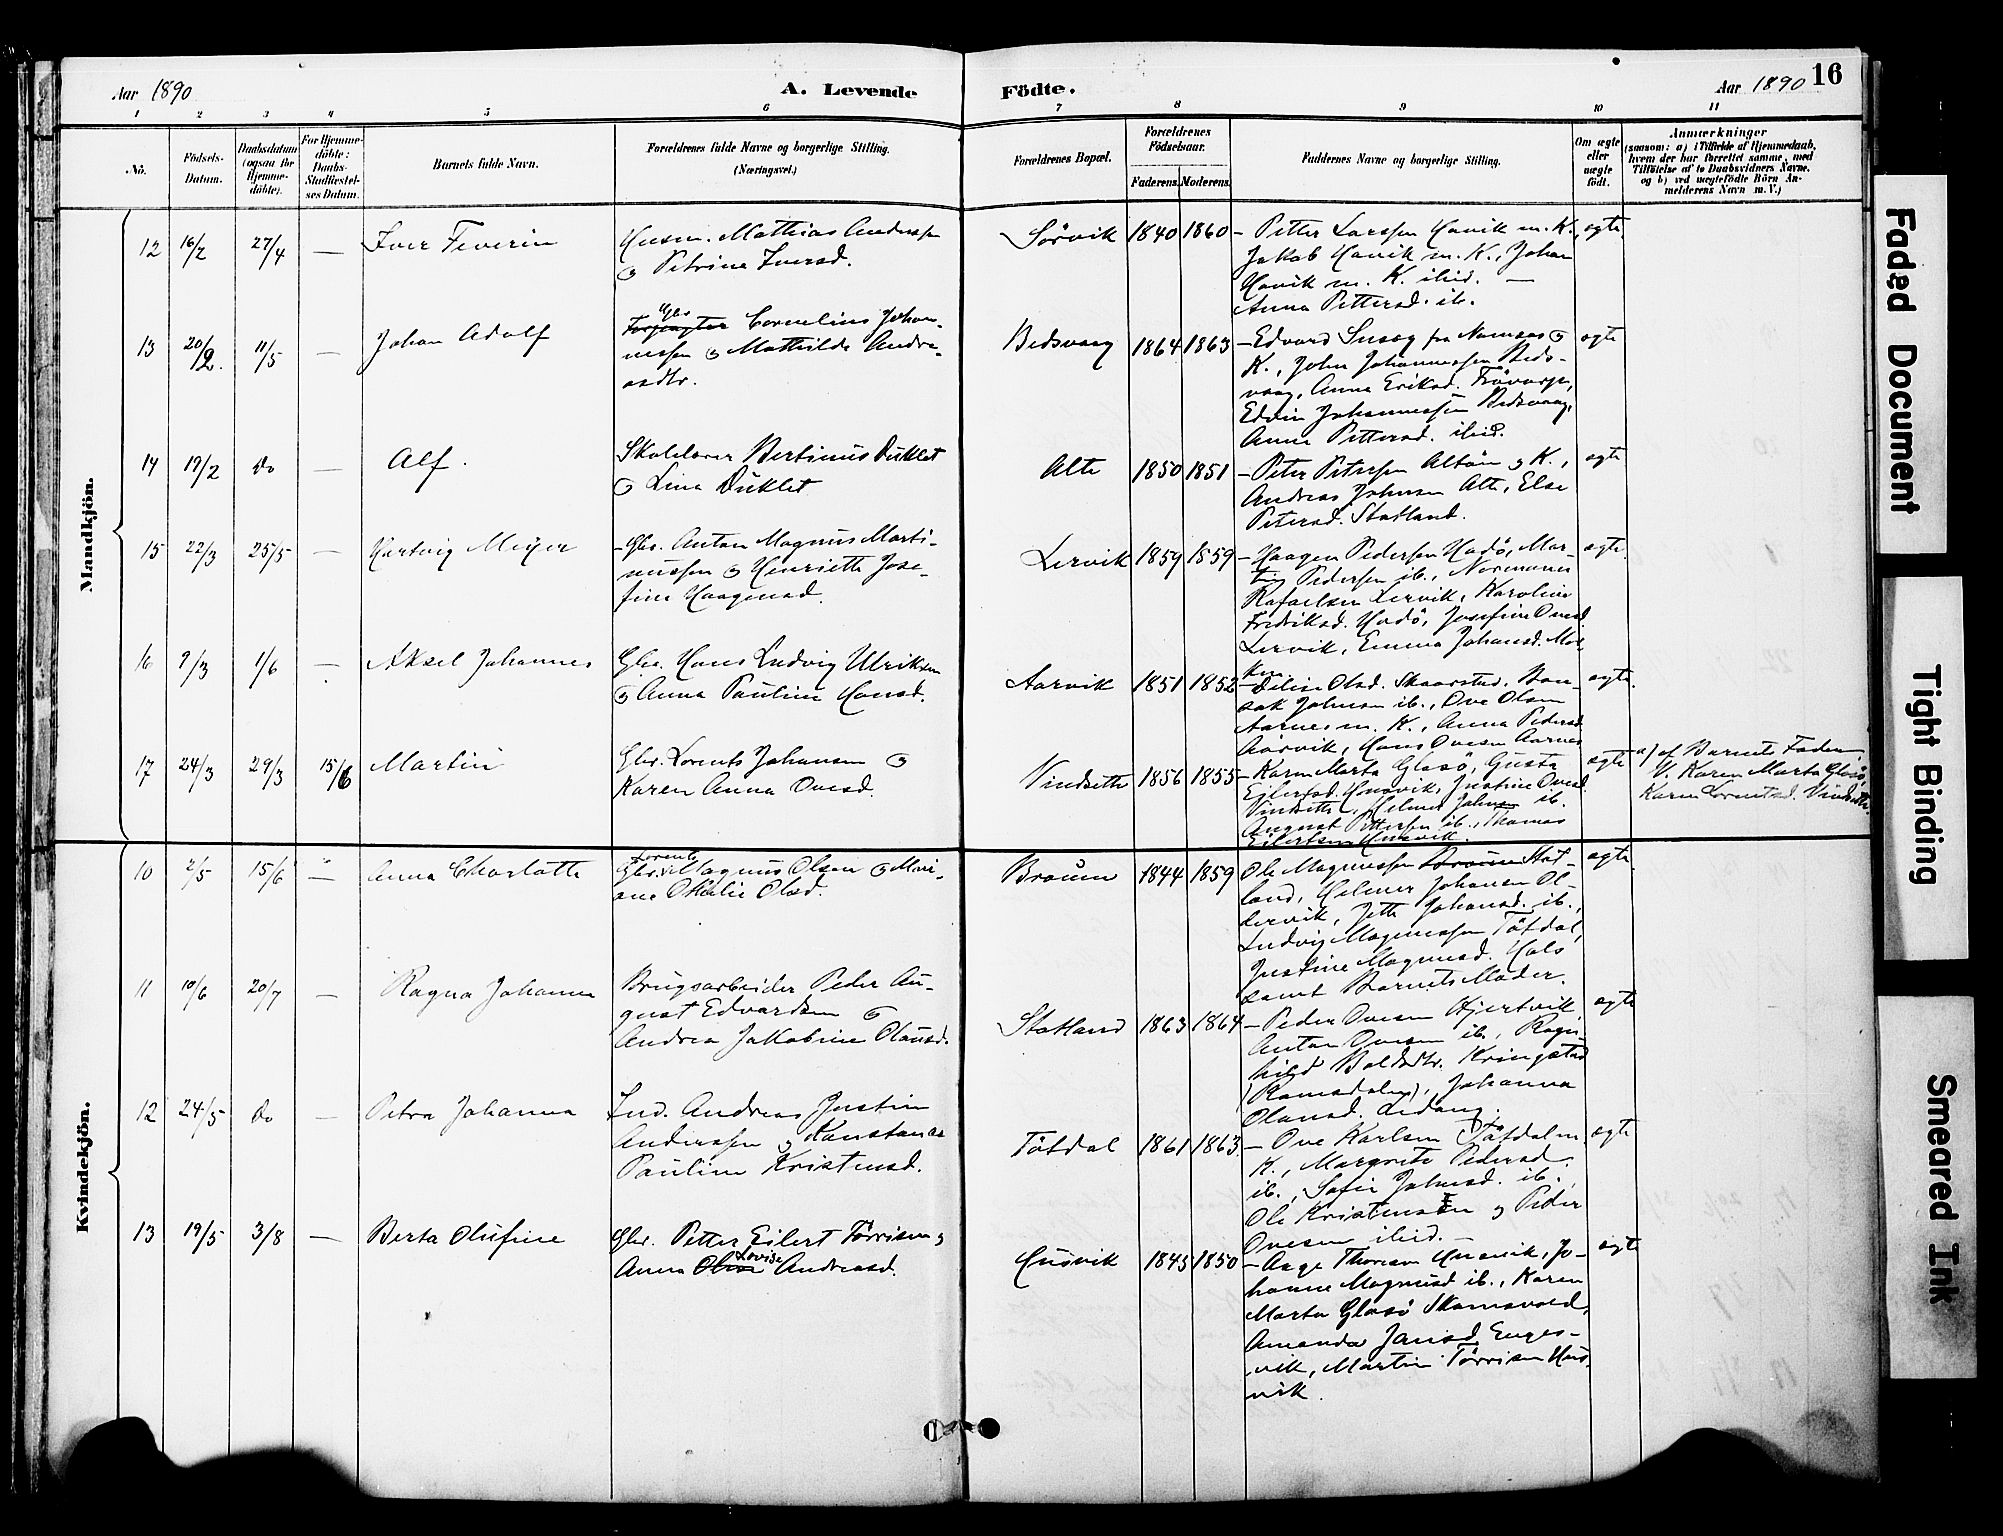 Aar 1890
A. Levende
Födte.
Aar 1890
16
1 2 3 4 5 6 7 8 9 10 11
No.
Födsels-
Datum.
Daabsdatum
(ogsaa for
Hjemme-
döbte).
For Hjemme-
döbte:
Daabs-
Stadfæstel-
ses Datum.
Barnets fulde Navn.
Forældrenes fulde Navne og borgerlige Stilling.
(Næringsvei.)
Forældrenes Bopæl.
Forældrenes
Födselsaar.
Faderens.
Moderens.
Faddernes Navne og borgerlige Stilling.
Om ægte
eller
uægte
födt.
Anmærkninger
(saasom: a) i Tilfælde af Hjemmedaab,
hvem der har forrettet samme, med
Tilföielse af to Daabsvidners Navne,
og b) ved uægtefödte Börn An-
melderens Navn m. V.)
Mandkjön.
12 16/2 27/4 — Iver Severin
Husm. Mathias Anderssen
og Petrine Iversd.
Sörvik 1840 1860
— Petter Larssen Havik m. K.,
Jakob Havik m. K., Johan
Havik m. K. ibid. —
Anna Pettersd. ib.
ægte
13 20/2. 11/5 — Johan Adolf
Gbr
Forpagter Cornelius Johan-
nessen og Mathilde Andre-
asdtr.
Bedsvaag 1864 1863
— Edvard Snseg fra Namsos og
K., John Johannessen Beds-
vaag, Anna Eriksd.
Edvin Johannessen Bedsvaag,
Anne Pettersd. ibid.
ægte
14 19/2 do — Alf.
Skolelærer Bertinus Duklet
og Lina Duklet
Alte 1850 1851
— Peter Petersen Altöen og K.,
Andreas Johnsen Alte, Else
Petersd. Statland.
ægte
15 22/3 25/5 — Hartvig Meyer
Gbr. Anton Magnus Marti-
nussen og Henriette Jose-
fine Haagensd.
Lervik 1859 1859
— Haagen Pedersen Hadö, Mar-
tin Pedersen ib., Normann
Rafaelsen Lervik, Karoline
Fredriksd. Hadö, Josefine Ovesd.
Lervik, Emma Johansd. Mos-
ægte
16 9/3 1/6 — Aksel Johannes
Gbr. Hans Ludvig Ulriksen
og Anna Pauline Hansd.
Aarvik 1851 1852
— Olsd. Skaarstad,
Johnsen ib., Ove Olsen
Aarnes m. K., Anna Pedersd.
Aarvik, Hans Ovesen Aarnes
ægte.
17 24/3 29/3 15/6 Martin
Gbr. Lorents Johansen og
Karen Anna Ovesd.
Vindseth 1856 1855
— Karen Marta Glasö, Gusta
Eilertsd. Husvik, Justine Ovesd.
Vindseth, Helmer Johnsen ib.
August Pettersen ib., Thomas
Eilertsen Husvik.
ægte
a) af Barnets Fader,
V. Karen Marta Glasö,
Karen Lorentsd. Vindseth.
Kvindekjön.
10 2/5 15/6 — Anna Charlotte
Lorents
Gbr. Magnus Olsen og Mari-
ane Othilie Olsd.
Brauen 1844 1859
Ole Magnussen Brauen Stat-
land, Helmer Johansen Öl-
lervik, Jette Johansd. ib.,
Ludvig Magnussen Tötdal,
Justine Magnusd. Hals
samt Barnets Moder.
ægte
11 10/6 20/7 — Ragna Johanna
Brugsarbeider Peder Au-
gust Edvardsen og
Andrea Jakobine Olausd.
Statland 1863 1864
— Peder Ovesen Hjertvik,
Anton Ovesen ib., Ragn-
hild Boldsdtr. Kringstad
(Romsdalen), Johanna
Olausd. Aedang.
ægte
12 24/5 do — Petra Johanna
Ind. Andreas Justin
Anderssen og Konstanse
Pauline Kristensd.
Tötdal 1861 1863
— Ove Karlsen Tötdal m.
K., Margrete Pedersd.
ib., Sofie Johnsd. ib.,
Ole Kristensen og Peder
Ovesen ibid. —
ægte
13 19/5 3/8 — Berta Olufine
Gbr. Petter Eilert Törrisen og
Lovise
Anna Oline Andreasd.
Husvik 1845 1850
— Aage Thoresen Husvik, Jo-
hanne Magnusd. ib., Karen
Marta Glasö Skomsvold,
Amanda Jansd. Enges-
vik, Martin Törrisen Hus-
vik.
ægte
Faded Document
Tight Binding
Smeared Ink